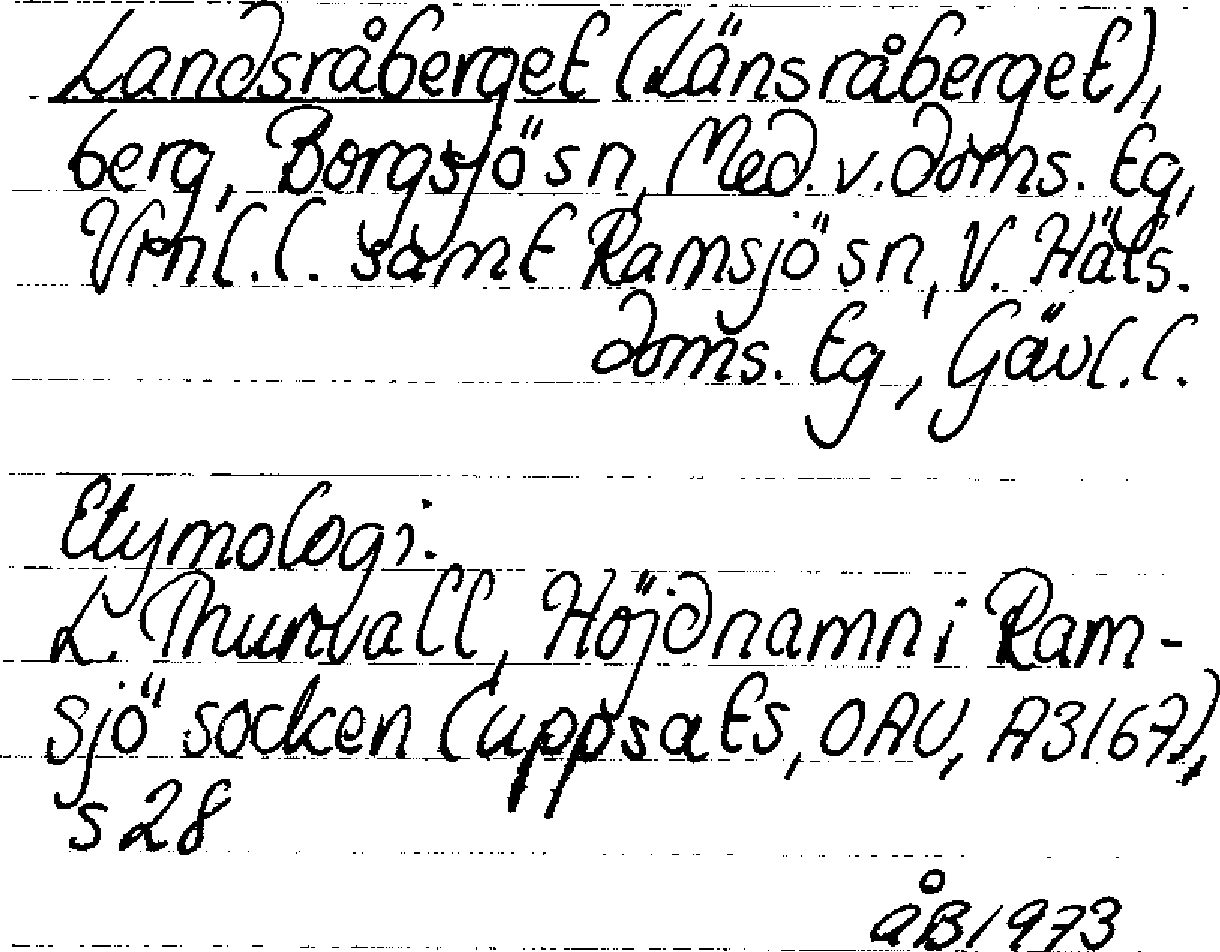 Landsråberget (Länsråberget),
berg, Borgsjö sn, Med. v. doms. tg,
Vrnl. l. samt Ramsjö sn, V. Häls.
doms. tg, Gävl. l.
Etymologi:
L. Thunvall, Höjdnamn i Ram-
sjö socken (uppsats, OAU, A3167),
s 28
ÅB 1973